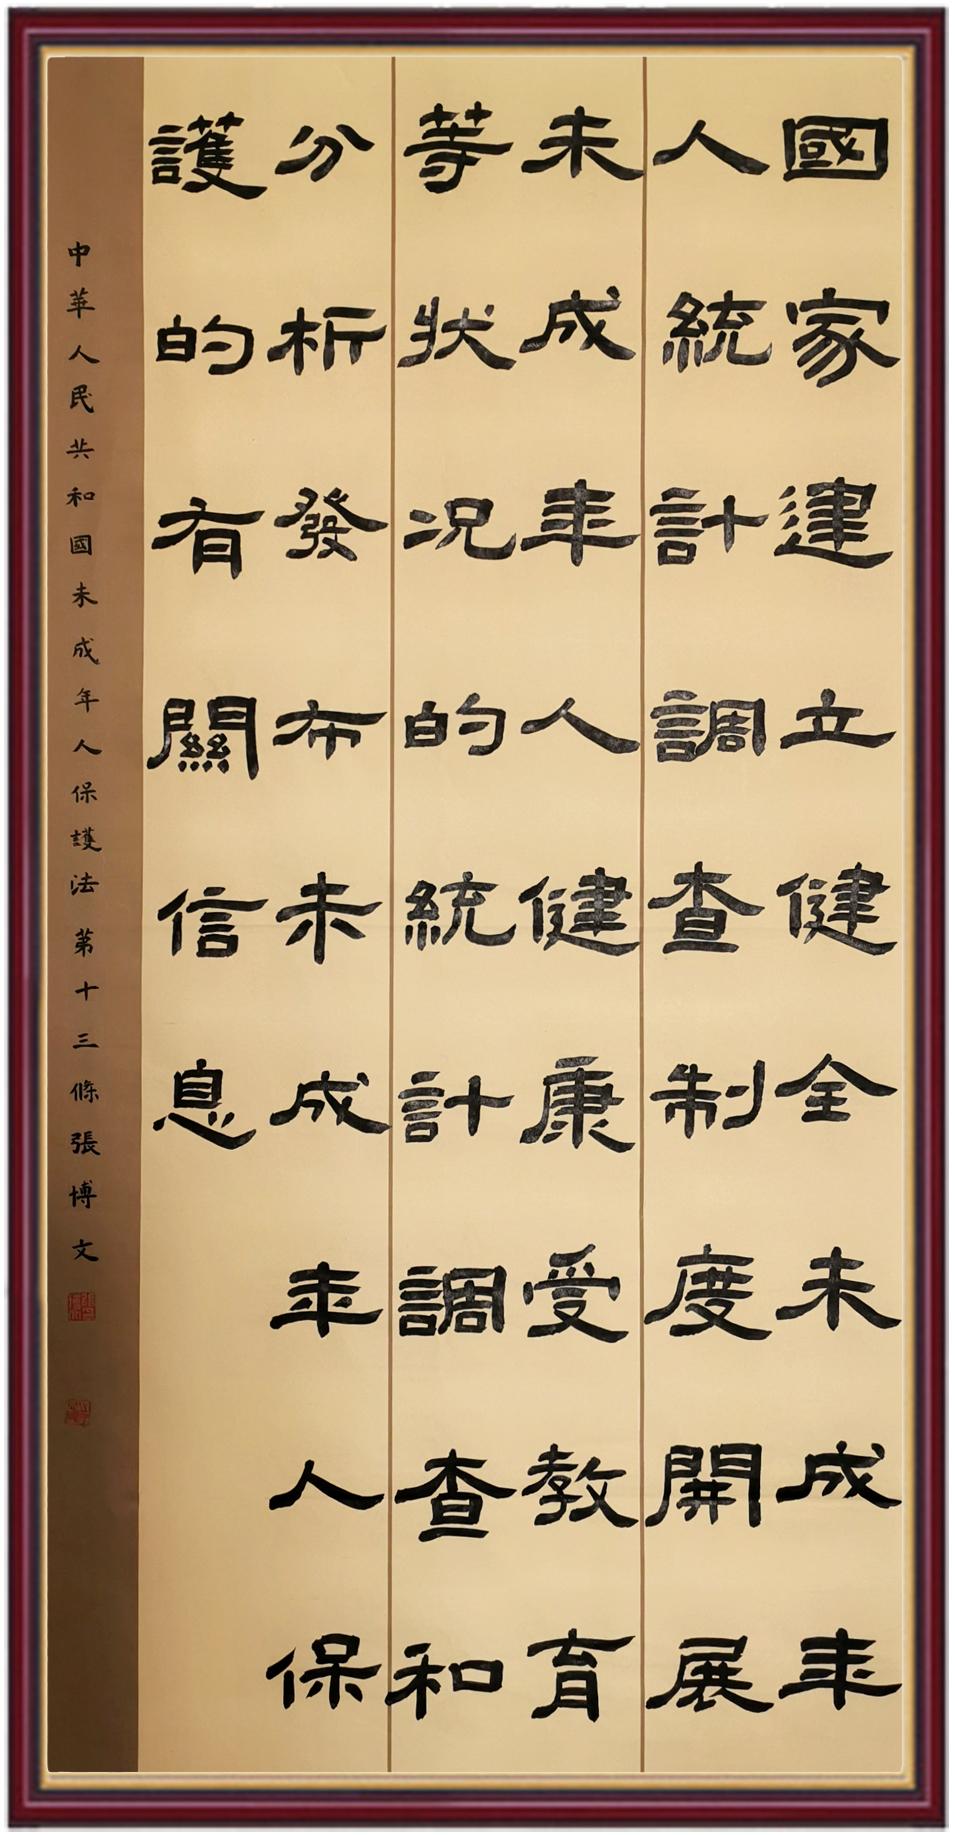 國家建立健全未成年
人統計調查制度開展
未成年人健康受教育
等狀况的統計調查和
分析發布未成年人保
護的有關信息
中華人民共和國未成年人保護法第十三條張博文